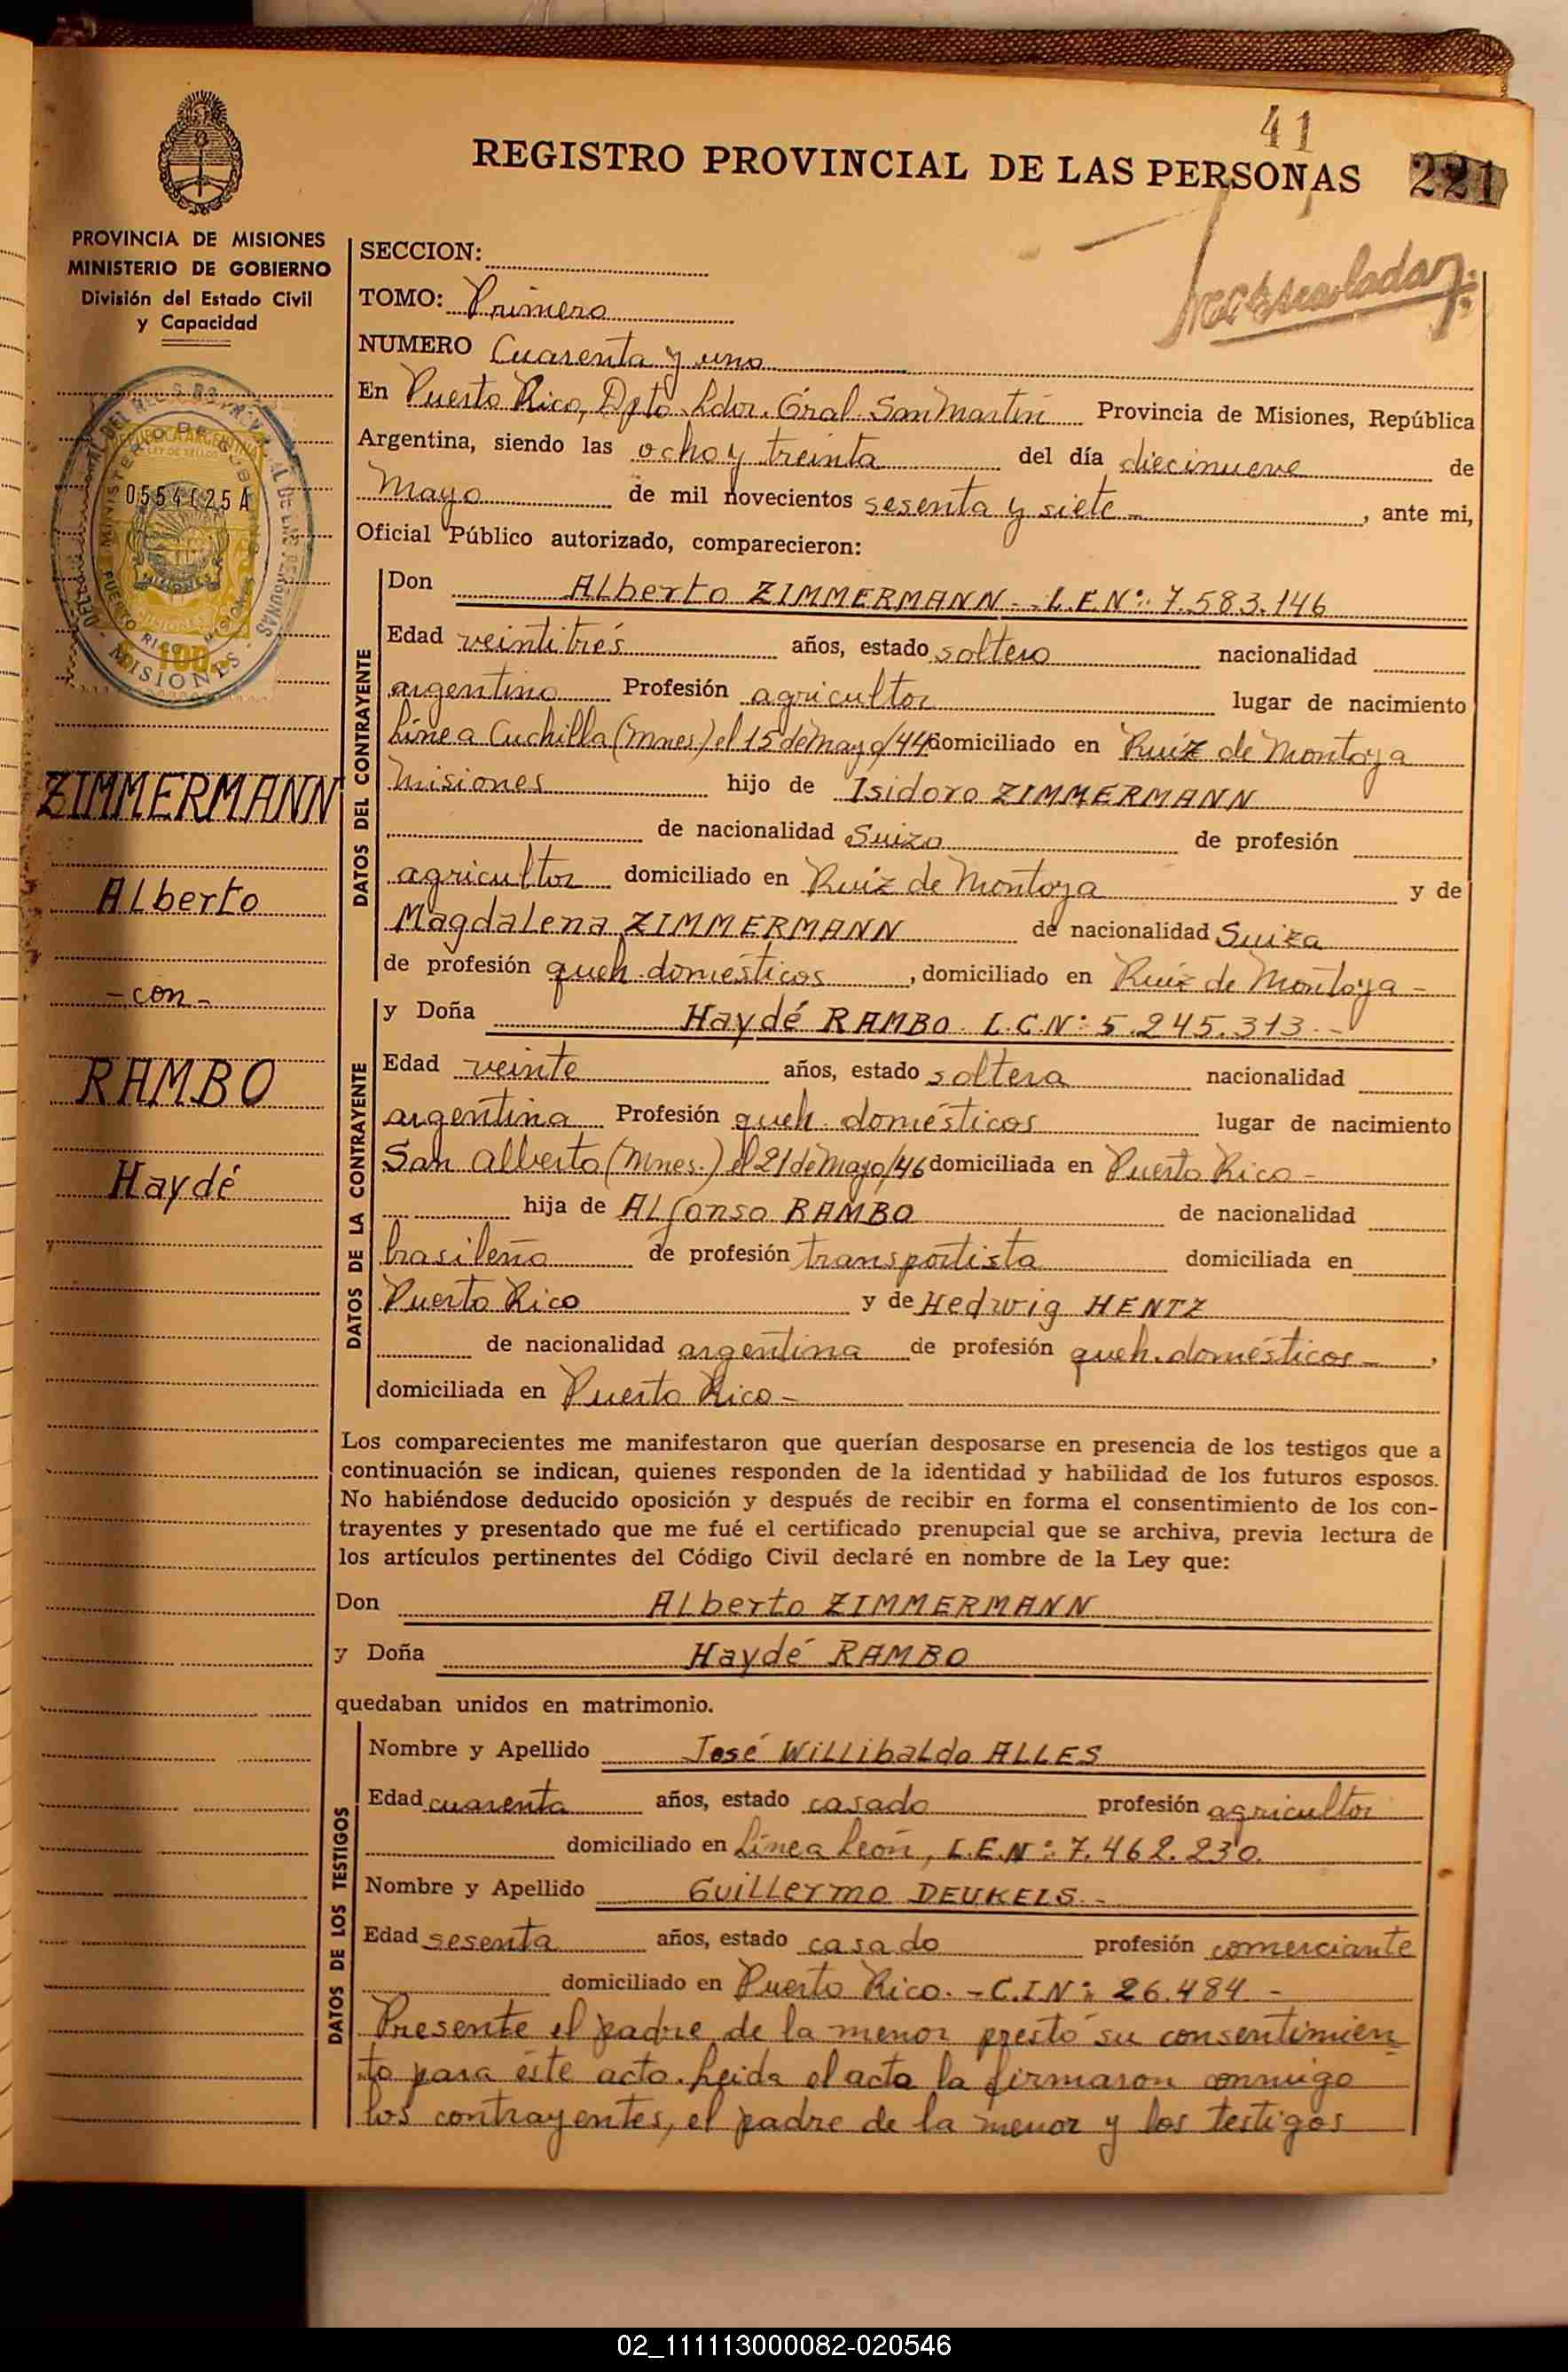 41
REGISTRO PROVINCIAL DE LAS PERSONAS 221
PROVINCIA DE MISIONES
MINISTERIO DE GOBIERNO
División del Estado Civil
y Capacidad
0554025A
REPUBLICA ARGENTINA
LEY DE SELLOS
MINISTERIO DE GOBIERNO
PUERTO RICO
MISIONES
100
ZIMMERMANN
Alberto
- con -
RAMBO
Haydé
SECCION:
TOMO: Primero
NUMERO Cuarenta y uno
En Puerto Rico, Dpto. Ldor. Gral San Martín Provincia de Misiones, República
Argentina, siendo las ocho y treinta del día diecinueve de
Mayo de mil novecientos sesenta y siete -, ante mi,
Oficial Público autorizado, comparecieron:
DATOS DEL CONTRAYENTE
Don Alberto ZIMMERMANN - L.E.Nº: 7.583.146
Edad veintitrés años, estado soltero nacionalidad
argentino Profesión agricultor lugar de nacimiento
Línea Cuchilla (Mnes) el 15 de mayo/44 domiciliado en Ruiz de Montoya
Misiones hijo de Isidoro ZIMMERMANN
de nacionalidad Suizo de profesión
agricultor domiciliado en Ruiz de Montoya y de
Magdalena ZIMMERMANN de nacionalidad Suiza
de profesión queh. domésticos, domiciliado en Ruiz de Montoya -
DATOS DE LA CONTRAYENTE
y Doña Haydé RAMBO. L.C.Nº: 5.245.313.-
Edad veinte años, estado soltera nacionalidad
argentina Profesión queh. domésticos lugar de nacimiento
San Alberto (Mnes.) el 21 de Mayo/46 domiciliada en Puerto Rico -
hija de Alfonso RAMBO de nacionalidad
brasileño de profesión transportista domiciliada en
Puerto Rico y de Hedwig HENTZ
de nacionalidad argentina de profesión queh. domésticos -,
domiciliada en Puerto Rico -
Los comparecientes me manifestaron que querían desposarse en presencia de los testigos que a
continuación se indican, quienes responden de la identidad y habilidad de los futuros esposos.
No habiéndose deducido oposición y después de recibir en forma el consentimiento de los con-
trayentes y presentado que me fué el certificado prenupcial que se archiva, previa lectura de
los artículos pertinentes del Código Civil declaré en nombre de la Ley que:
Don Alberto ZIMMERMANN
y Doña Haydé RAMBO
quedaban unidos en matrimonio.
DATOS DE LOS TESTIGOS
Nombre y Apellido José Willibaldo ALLES
Edad cuarenta años, estado casado profesión agricultor
domiciliado en Línea León, L.E.Nº: 7.462.230.
Nombre y Apellido Guillermo DEUKELS.-
Edad sesenta años, estado casado profesión comerciante
domiciliado en Puerto Rico. - C.I.Nº: 26.484 -
Presente el padre de la menor prestó su consentimien
to para éste acto. Leída el acta la firmaron conmigo
los contrayentes, el padre de la menor y los testigos
02_111113000082-020546